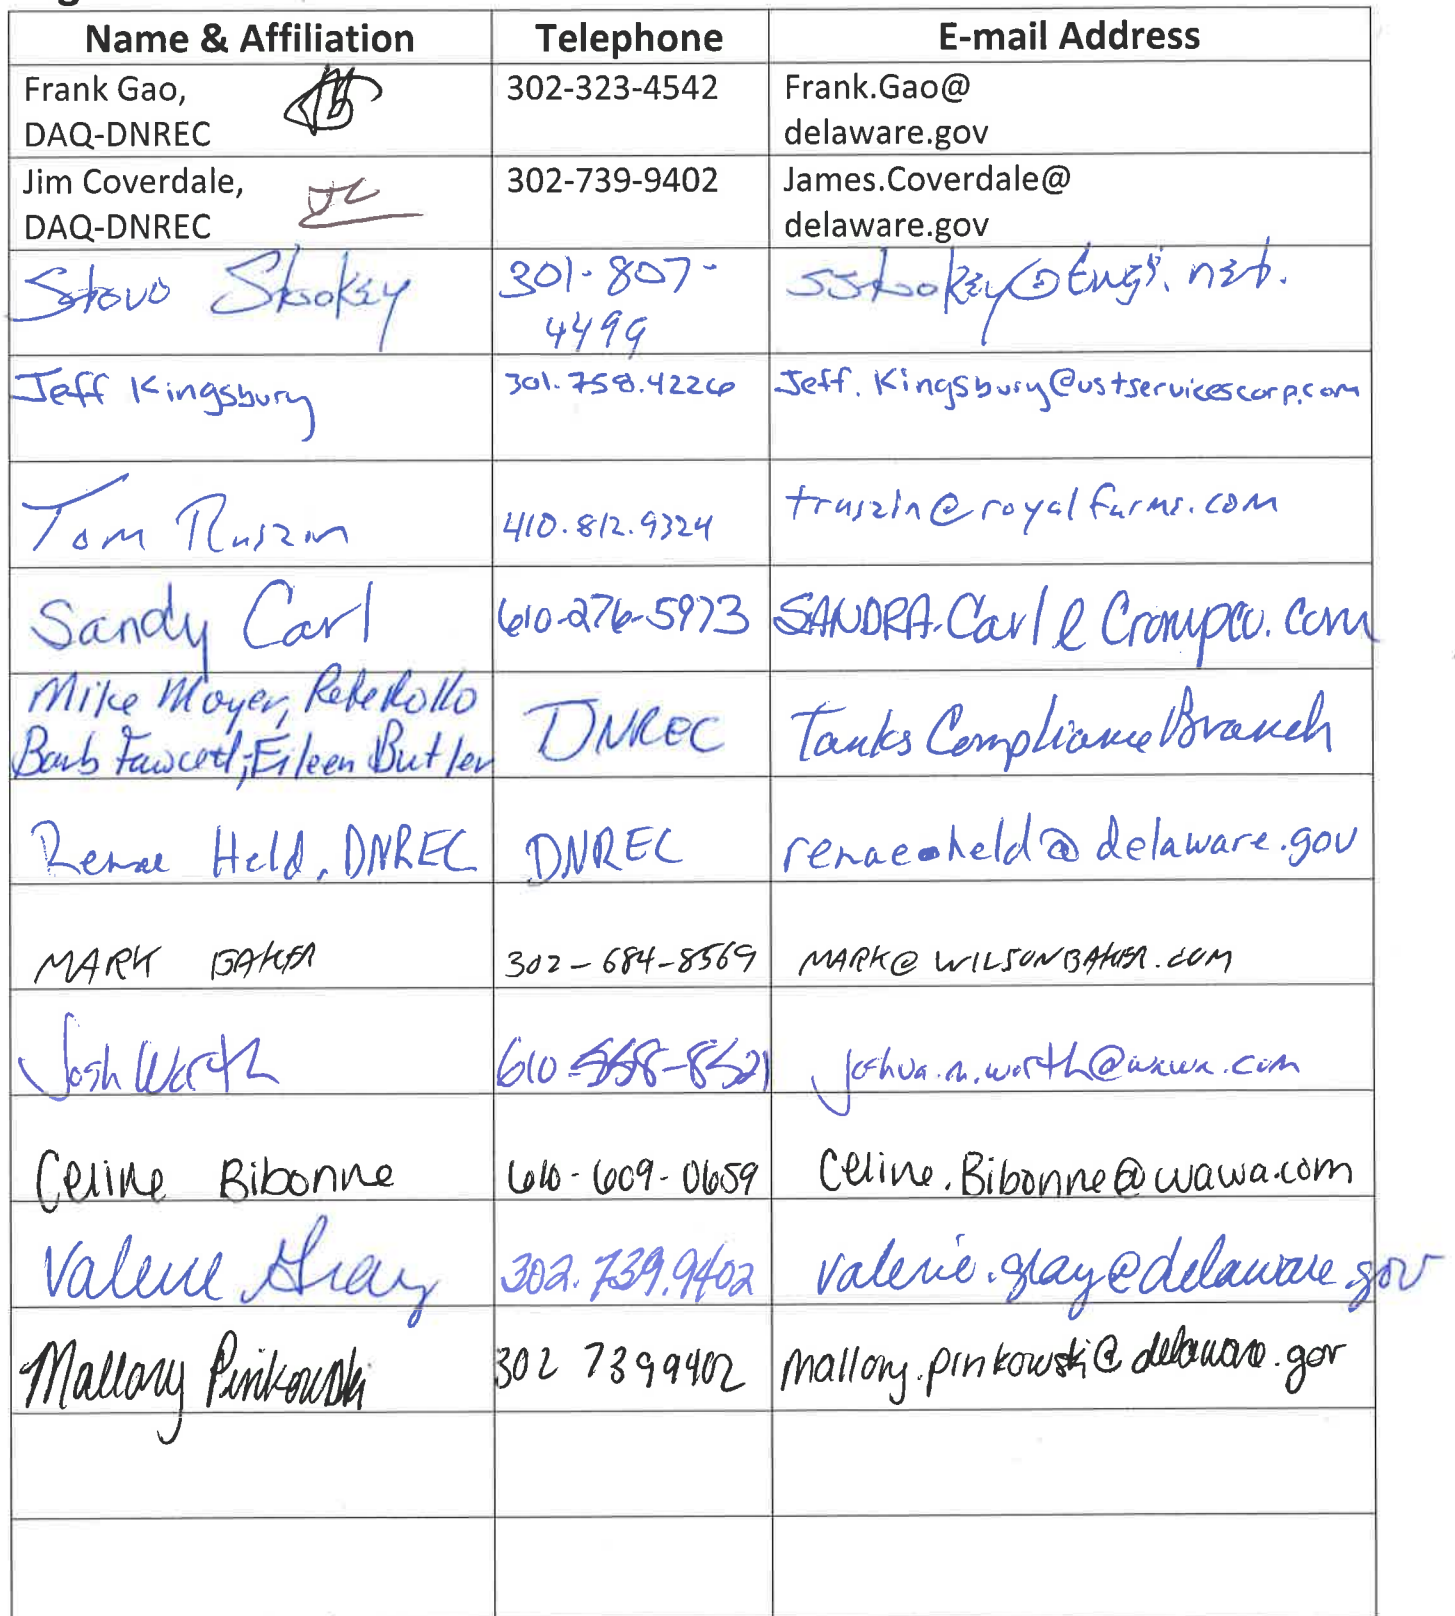 Name & Affiliation Telephone E-mail Address
Frank Gao, 302-323-4542 Frank.Gao@
DAQ-DNREC delaware.gov
Jim Coverdale, JC 302-739-9402 James.Coverdale@
DAQ-DNREC delaware.gov
Steve Skookey 301-807- sskookey@
4499
Jeff Kingsbury 301.758.4226 Jeff.Kingsbury@ustservicescorp.com
Tom Ruszin 410.812.9324 truszin@royalfarms.com
Sandy Carl 610-276-5973 SANDRA.Carl@Crompco.com
Mike Moyer,
Barb Fawcett, Eileen Butler DNREC Tanks Compliance Branch
Renae Held, DNREC DNREC renae.held@delaware.gov
MARK BAKER 302-684-8569 MARK@WILSONBAKER.COM
Josh Worth 610 joshua.m.worth@wawa.com
Celine Bibonne 610-609-0659 Celine.Bibonne@wawa.com
Valerie Gray 302.739.9402 valerie.gray@delaware.gov
Mallory Pinkowski 302 7399402 mallory.pinkowski@delaware.gov